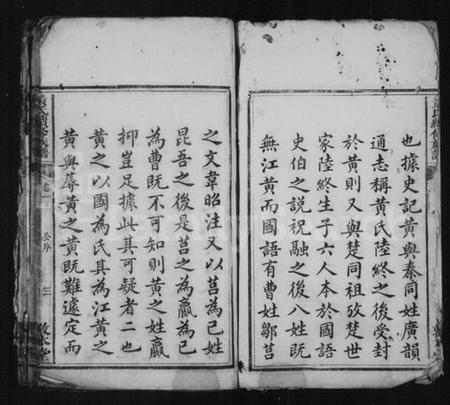 也據史記黃與秦同姓廣韻
通志稱黃氏陸終之後受封
於黃則又與楚同祖攷楚世
家陸終生子六人本於國語
史伯之說祝融之後八姓既
無江黃而國語有曹姓鄒莒
之文韋昭注又以莒為己姓
昆吾之後是莒之為嬴為己
為曹既不可知則黃之姓嬴
抑豈足據此其可疑者二也
黃之以國為氏其為江黃之
黃與蓐黃之黃既難遽定而
卷一
三
敦本堂